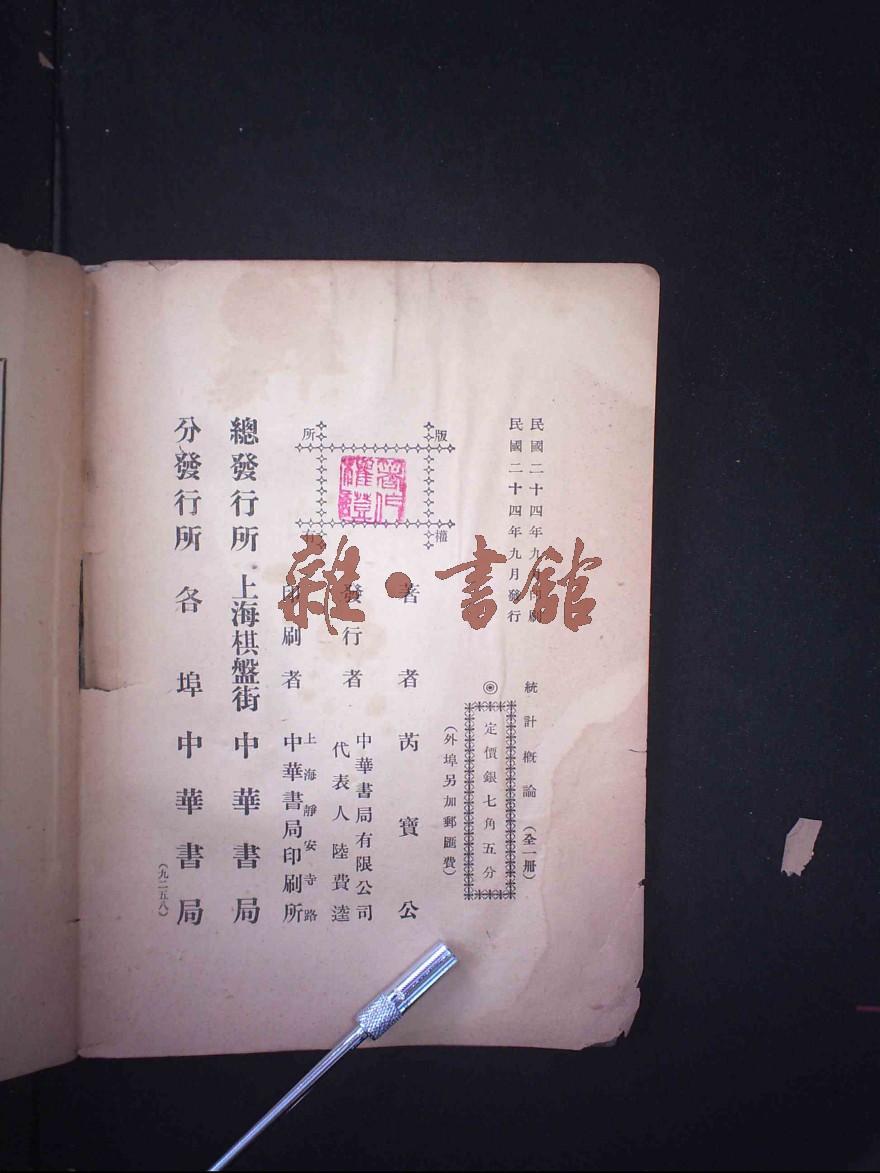 民國二十四年九月印刷
民國二十四年九月發行
統計概論（全一册）
◎定價銀七角五分
（外埠另加郵匯費）
版權所有
著作權證
著者 芮寶公
發行者 中華書局有限公司
代表人陸費逵
印刷者 上海靜安寺路
中華書局印刷所
總發行所 上海棋盤街 中華書局
分發行所 各埠 中華書局
（九二五八）
雜·書館